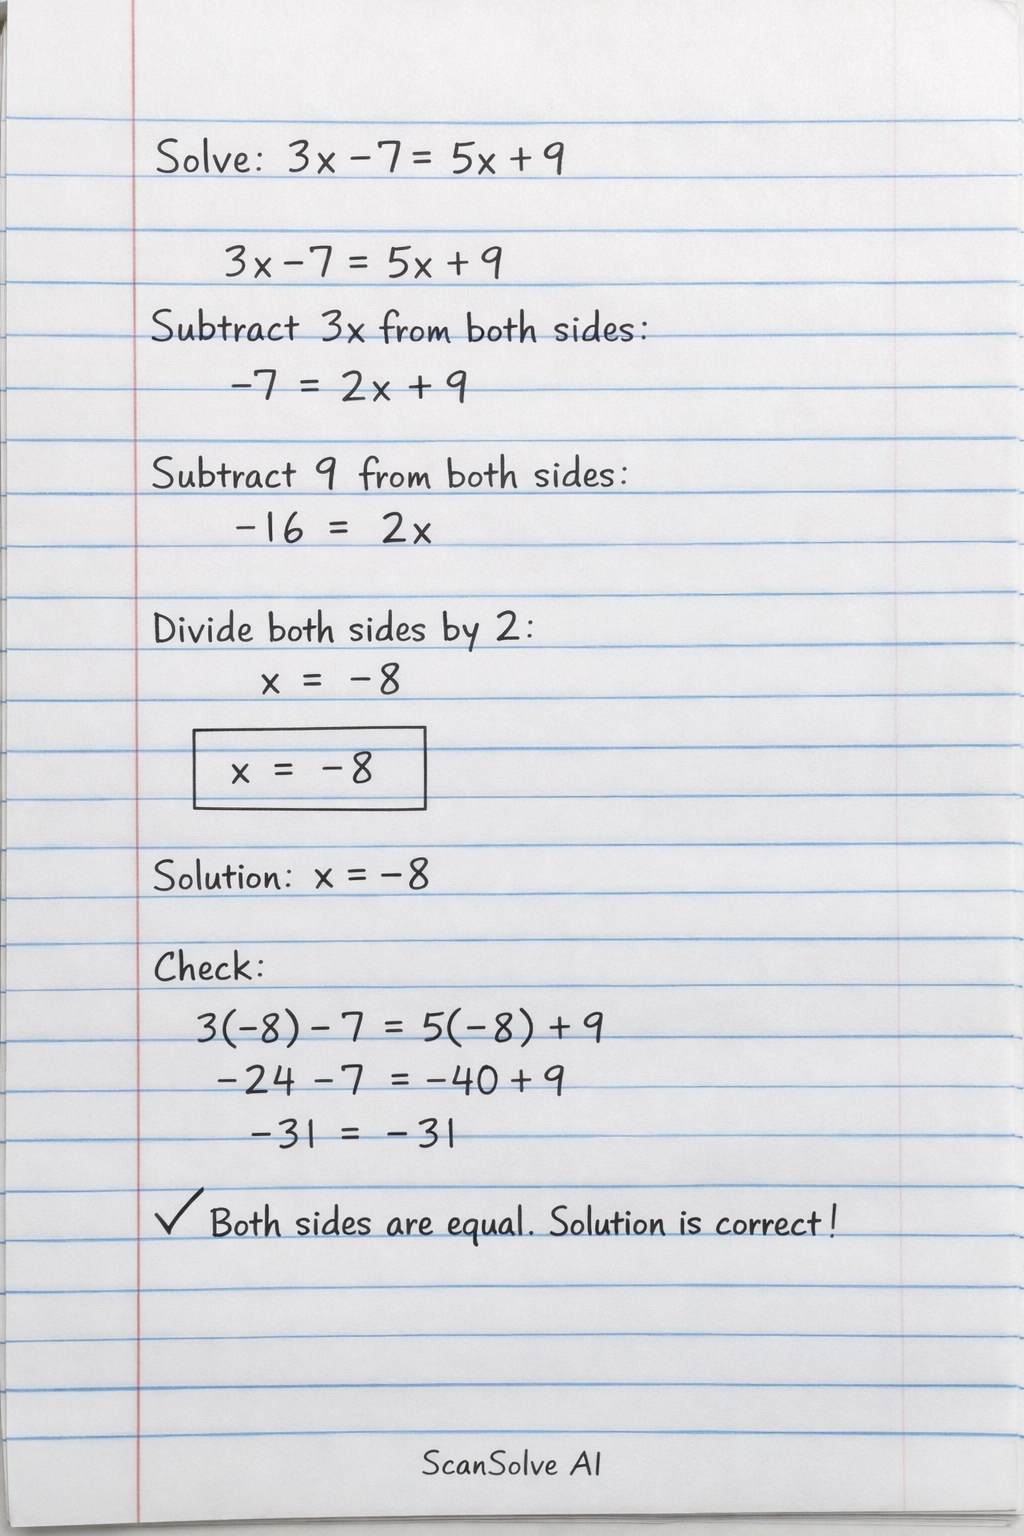 Solve: 3x - 7 = 5x + 9
3x - 7 = 5x + 9
Subtract 3x from both sides:
-7 = 2x + 9
Subtract 9 from both sides:
-16 = 2x
Divide both sides by 2:
x = -8
x = -8
Solution: x = -8
Check:
3(-8) - 7 = 5(-8) + 9
-24 - 7 = -40 + 9
-31 = -31
✓ Both sides are equal. Solution is correct!
ScanSolve AI